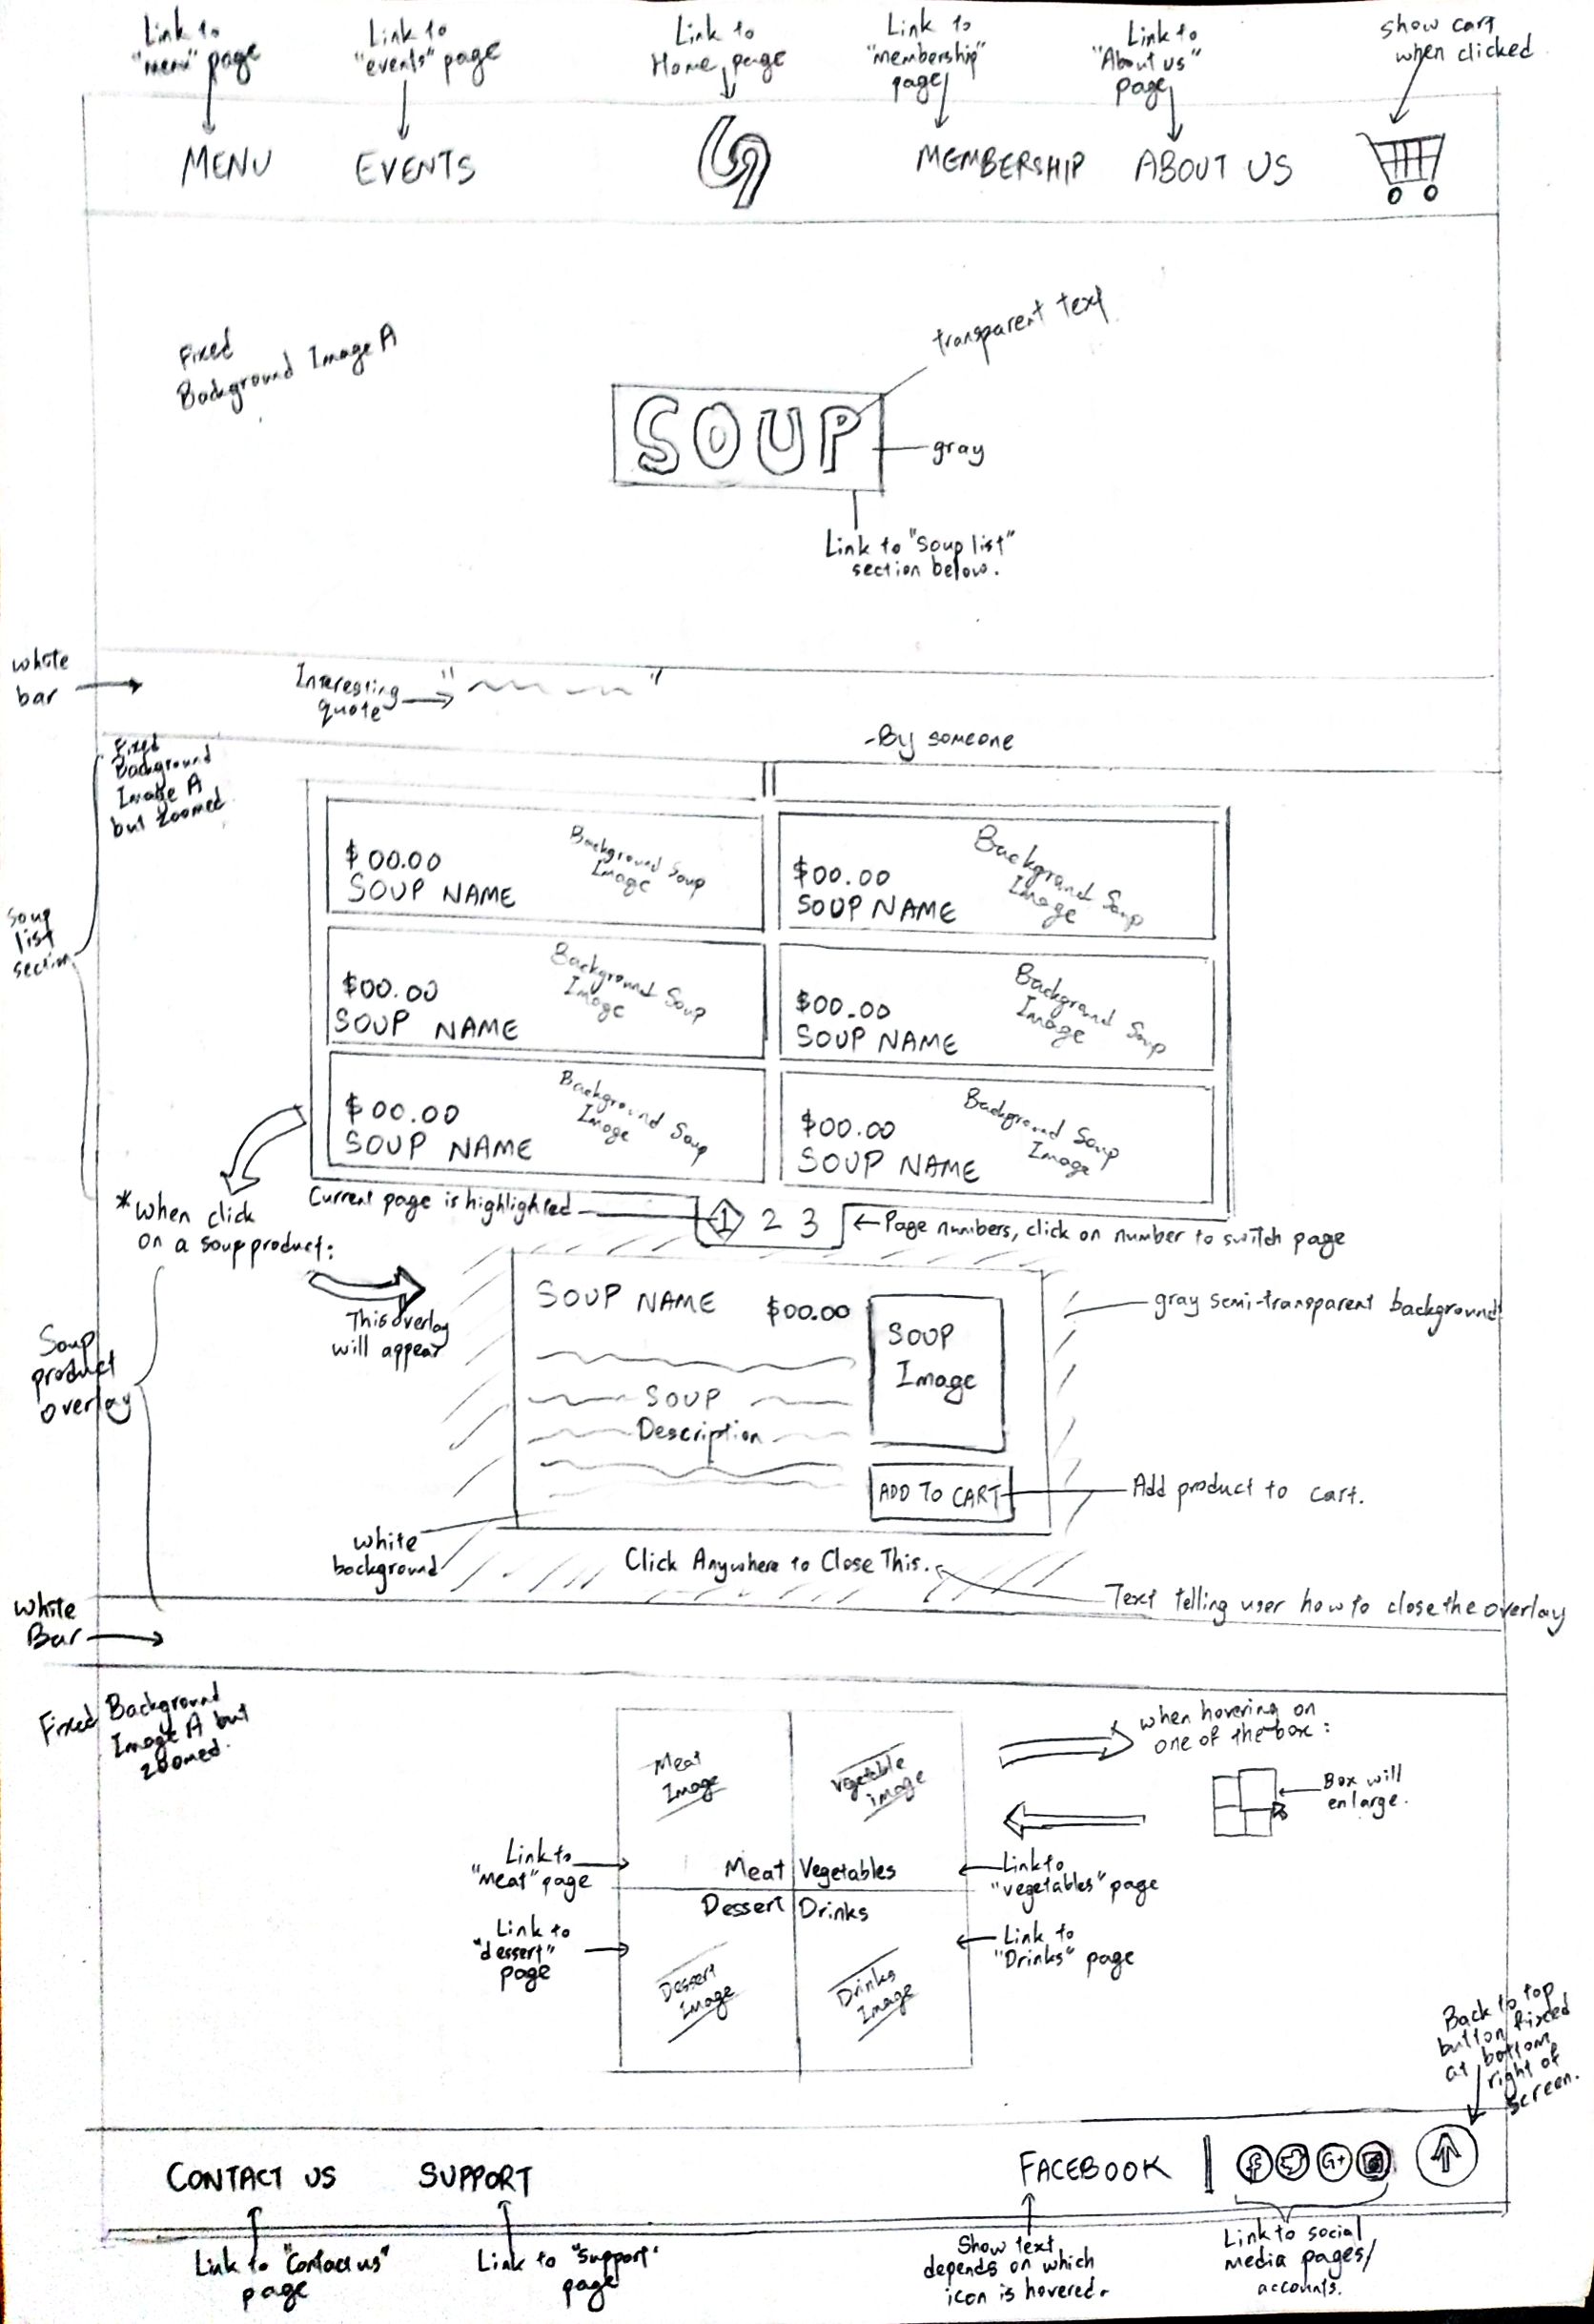 Link to
"menu" page
Link to
"events" page
Link to
Home page
Link to
"membership"
page
Link to
"About us"
page
show cart
when clicked
MENU
EVENTS
MEMBERSHIP
ABOUT US
Fixed
Background Image A
transparent text
SOUP
gray
Link to "Soup list"
section below.
white
bar
Interesting
quote
" "
-By someone
Fixed
Background
Image A
but zoomed
Soup
list
section
$00.00
SOUP NAME
Background Soup
Image
$00.00
SOUP NAME
Background Soup
Image
$00.00
SOUP NAME
Background Soup
Image
$00.00
SOUP NAME
Background Soup
Image
$00.00
SOUP NAME
Background Soup
Image
$00.00
SOUP NAME
Background Soup
Image
Current page is highlighted
1 2 3
Page numbers, click on number to switch page
*when click
on a soup product:
This overlay
will appear
Soup
product
overlay
SOUP NAME $00.00
SOUP
Image
SOUP
Description
ADD TO CART
gray semi-transparent background
Add product to cart.
white
background
Click Anywhere to Close This.
Text telling user how to close the overlay
White
Bar
Fixed Background
Image A but
zoomed.
Meat
Image
Vegetable
image
Meat
Vegetables
Dessert
Drinks
Dessert
Image
Drinks
Image
when hovering on
one of the box:
Box will
enlarge.
Link to
"meat" page
Link to
"vegetables" page
Link to
"dessert"
page
Link to
"Drinks" page
Back to top
button fixed
at bottom
right of
screen.
CONTACT US
SUPPORT
FACEBOOK
f
G+
Link to "Contact us"
page
Link to "support"
page
Show text
depends on which
icon is hovered.
Link to social
media pages/
accounts.